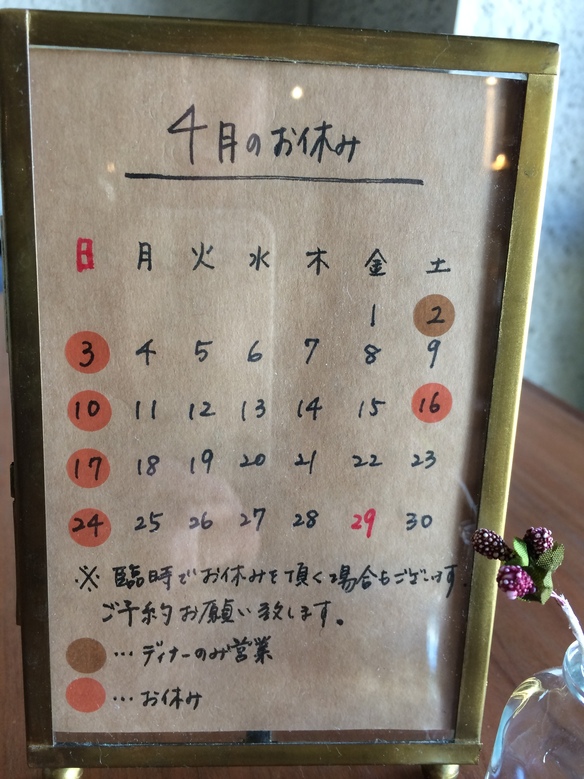 4月のお休み
日 月 火 水 木 金 土
1 2
3 4 5 6 7 8 9
10 11 12 13 14 15 16
17 18 19 20 21 22 23
24 25 26 27 28 29 30
※ 臨時でお休みを頂く場合もございます。
ご予約お願い致します。
…ディナーのみ営業
…お休み